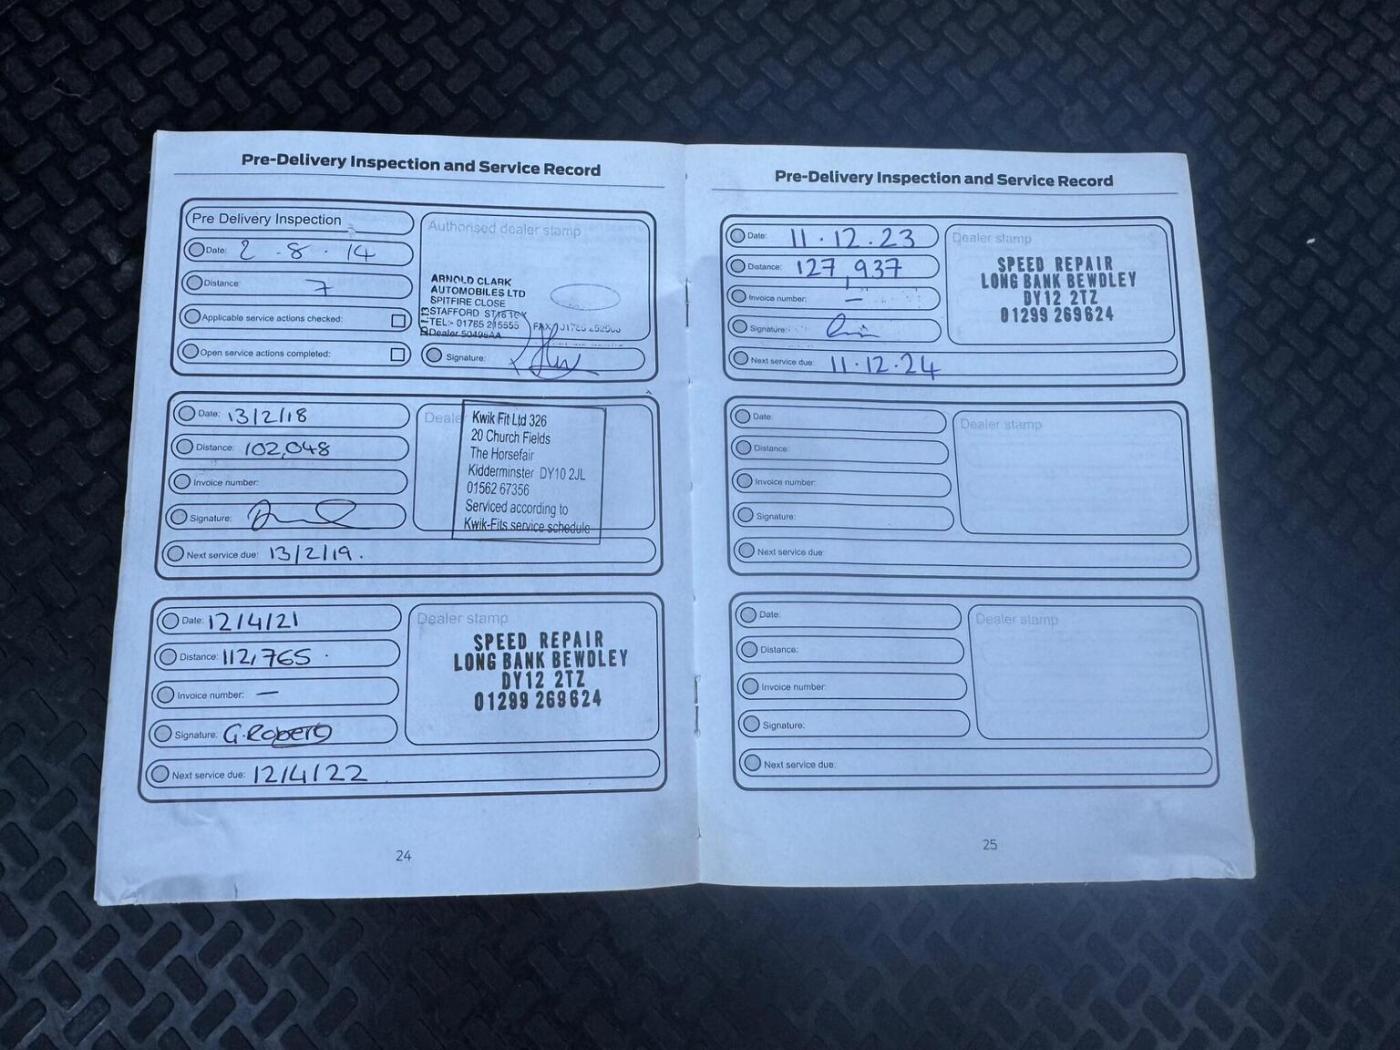 Pre-Delivery Inspection and Service Record
Pre Delivery Inspection
Date: 2 . 8 . 14
Distance: 7
Applicable service actions checked:
Open service actions completed:
Authorised dealer stamp
ARNOLD CLARK
AUTOMOBILES LTD
SPITFIRE CLOSE
STAFFORD
TEL:- 01785 FAX
Dealer
Signature:
Date: 13/2/18
Distance: 102,048
Invoice number:
Signature:
Next service due: 13/2/19.
Kwik Fit Ltd 326
20 Church Fields
The Horsefair
Kidderminster DY10 2JL
01562 67356
Serviced according to
Kwik-Fits service schedule
Date: 12/4/21
Distance: 112,765
Invoice number: —
Signature: G.Roberts
Next service due: 12/4/22
Dealer stamp
SPEED REPAIR
LONG BANK BEWDLEY
DY12 2TZ
01299 269624
24
Pre-Delivery Inspection and Service Record
Date: 11.12.23
Distance: 127,937
Invoice number: —
Signature:
Next service due: 11.12.24
Dealer stamp
SPEED REPAIR
LONG BANK BEWDLEY
DY12 2TZ
01299 269624
Date:
Distance:
Invoice number:
Signature:
Next service due:
Dealer stamp
Date:
Distance:
Invoice number:
Signature:
Next service due:
Dealer stamp
25